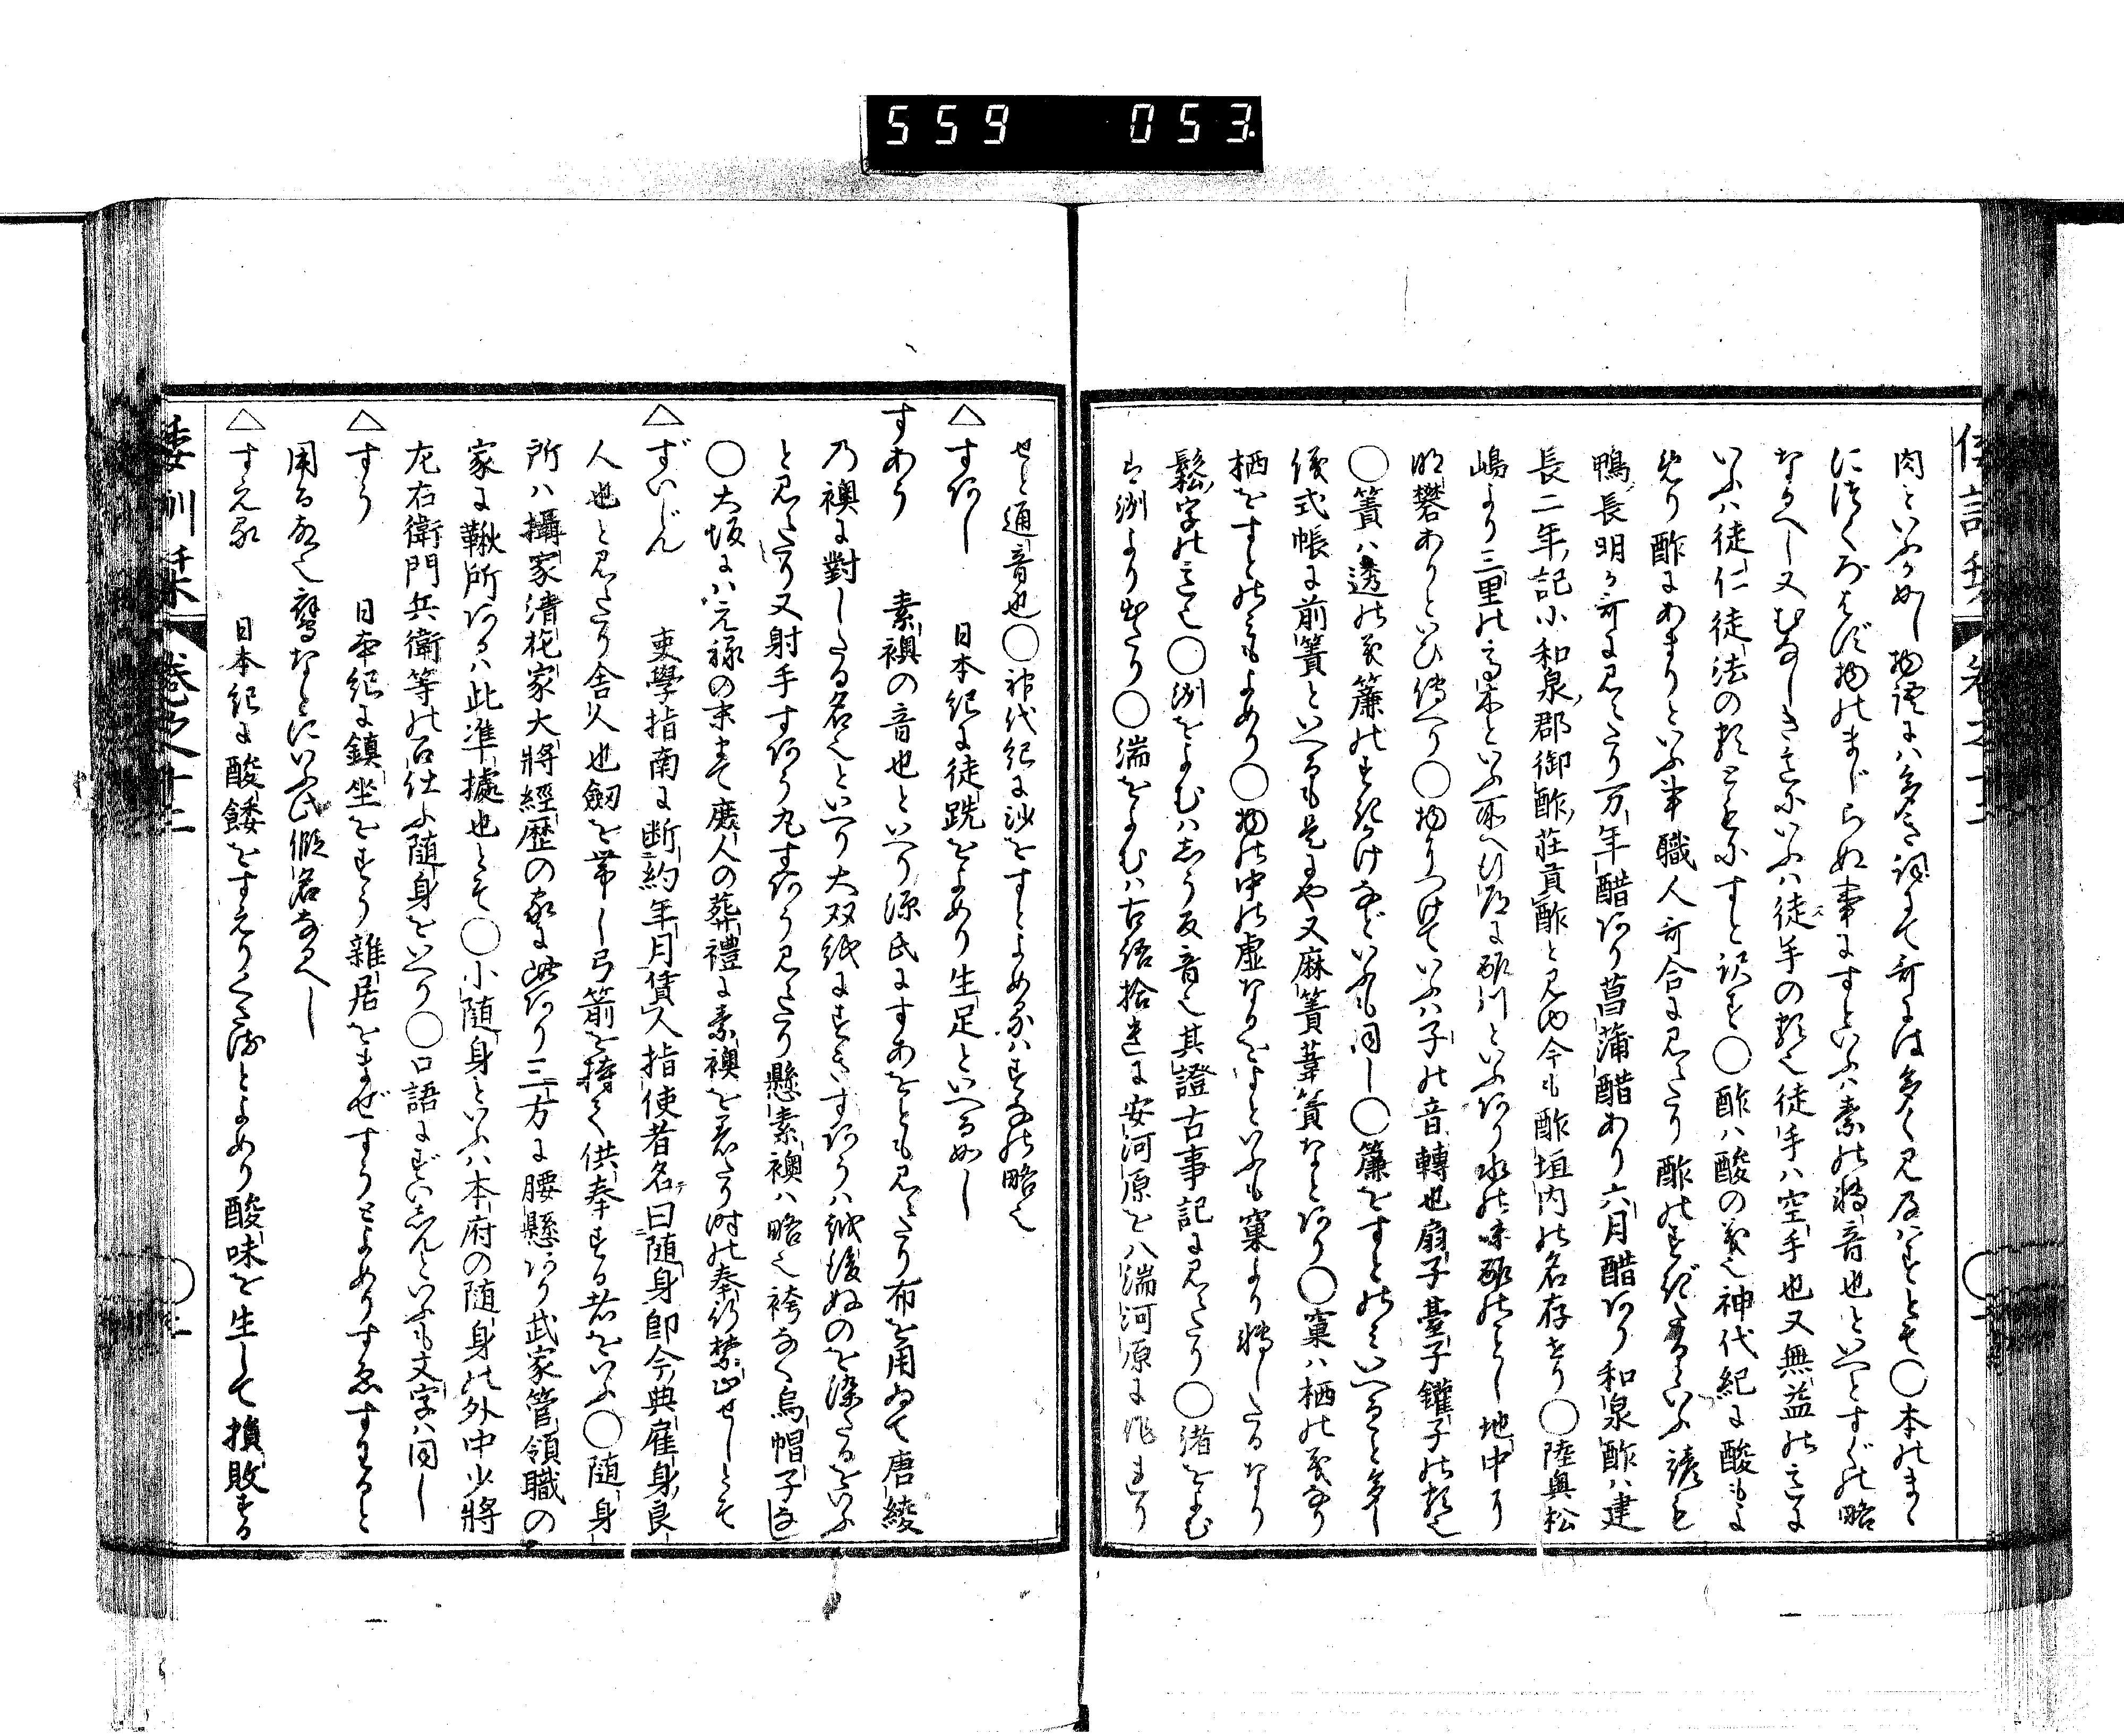 559 053
肉といふか如し物語には多き詞にて哥には多く見及はすとそ〇本のまゝ
にはくろはず物のまじらぬ事にすといふハ素の轉音也といへとすぐの略
なるへし又むなしき意にいふハ徒手の類也徒手ハ空手也又無益の意に
いふハ徒仁徒法の類ともにすと訳す〇酢ハ酸の義也神代紀に酸もよ
めり酢にあまりといふ事職人哥合に見えたり酢の
鴨長明か哥に見えたり万年醋あり菖蒲醋あり六月醋あり和泉酢ハ建
長二年記小和泉郡御酢莊貢酢と見ゆ今も酢垣内の名存せり〇陸奥松
嶋より三里の高木といふ所へ行道に酢川といふあり水の味酢のことし地中に
明礬ありといひ傳へり〇物につけていふハ子の音轉也扇子臺子鑵子の類也
〇簀ハ透の義簾のすだれかけなどいふも同し〇簾をすとのミいへること多し
儀式帳に前簀といへるも是にや又麻簀葦簀なとあり〇窠ハ栖の義なり
栖をすとのミもよめり〇物の中の虚なるをすといふも窠より轉したるなり
鬆字の意也〇洲をよむハしう反音也其證古事記に見えたり〇渚をよむ
も洲より出たり〇湍をよむハ古語拾遺に安河原を八湍河原に作れり
せと通音也〇神代紀に沙をすとよめるハすなの略也
△すあし　日本紀に徒跣をよめり生足といへる如し
すあう　素襖の音也といへり源氏にすあをとも見えたり布を用ゐて唐綾
乃襖に對したる名也といへり大双紙にすきすあうハ越後ぬのを染たるをいふ
と見えたり又射手すあう丸すあう見えたり懸素襖ハ略也袴なく烏帽子
〇大坂にハ元祿の末まて庶人の葬禮に素襖を着たり時の奉行禁止せしとそ
△ずいじん　吏學指南に断約年月賃人指使者名曰隨身即今典雇身良
人也と見えたり舍人也劔を帯し弓箭を携て供奉する者をいふ〇随身
所ハ攝家清花家大將經歴の家に必あり三方に腰懸あり武家管領職の
家に鞦所あるハ此準據也とそ〇小随身といふハ本府の随身の外中少將
左右衛門兵衛等の召仕ふ随身をいへり〇口語にずいしんといふも文字ハ同し
△すう　日本紀に鎮坐をすう雜居をまぜすうとよめりすゑすわると
用る
鷹なとにいふ氏假名なるへし
△すえる　日本紀に酸餧をすえりくさるとよめり酸味を生して損敗する
倭訓栞　卷之十二